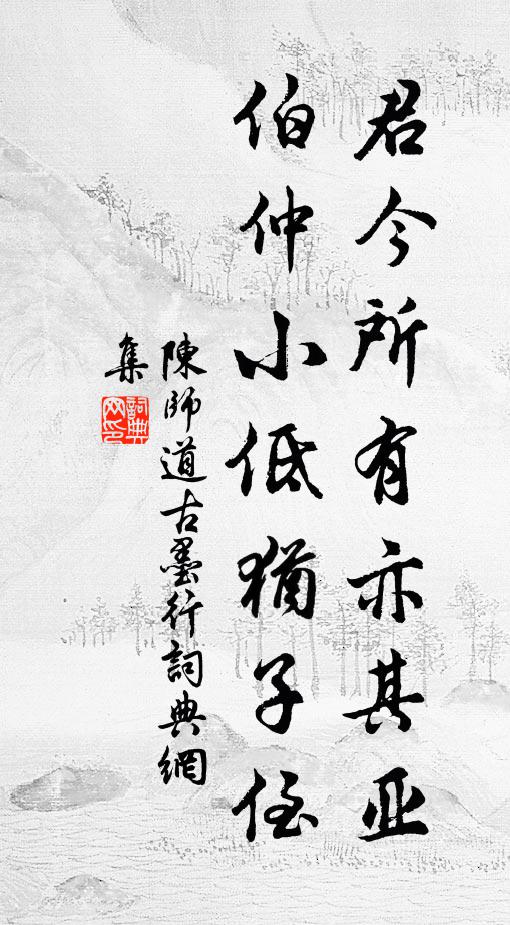 君今所有亦其亚
伯仲小低猶子侄
陳師道古墨行詞典網
集
詞典网印